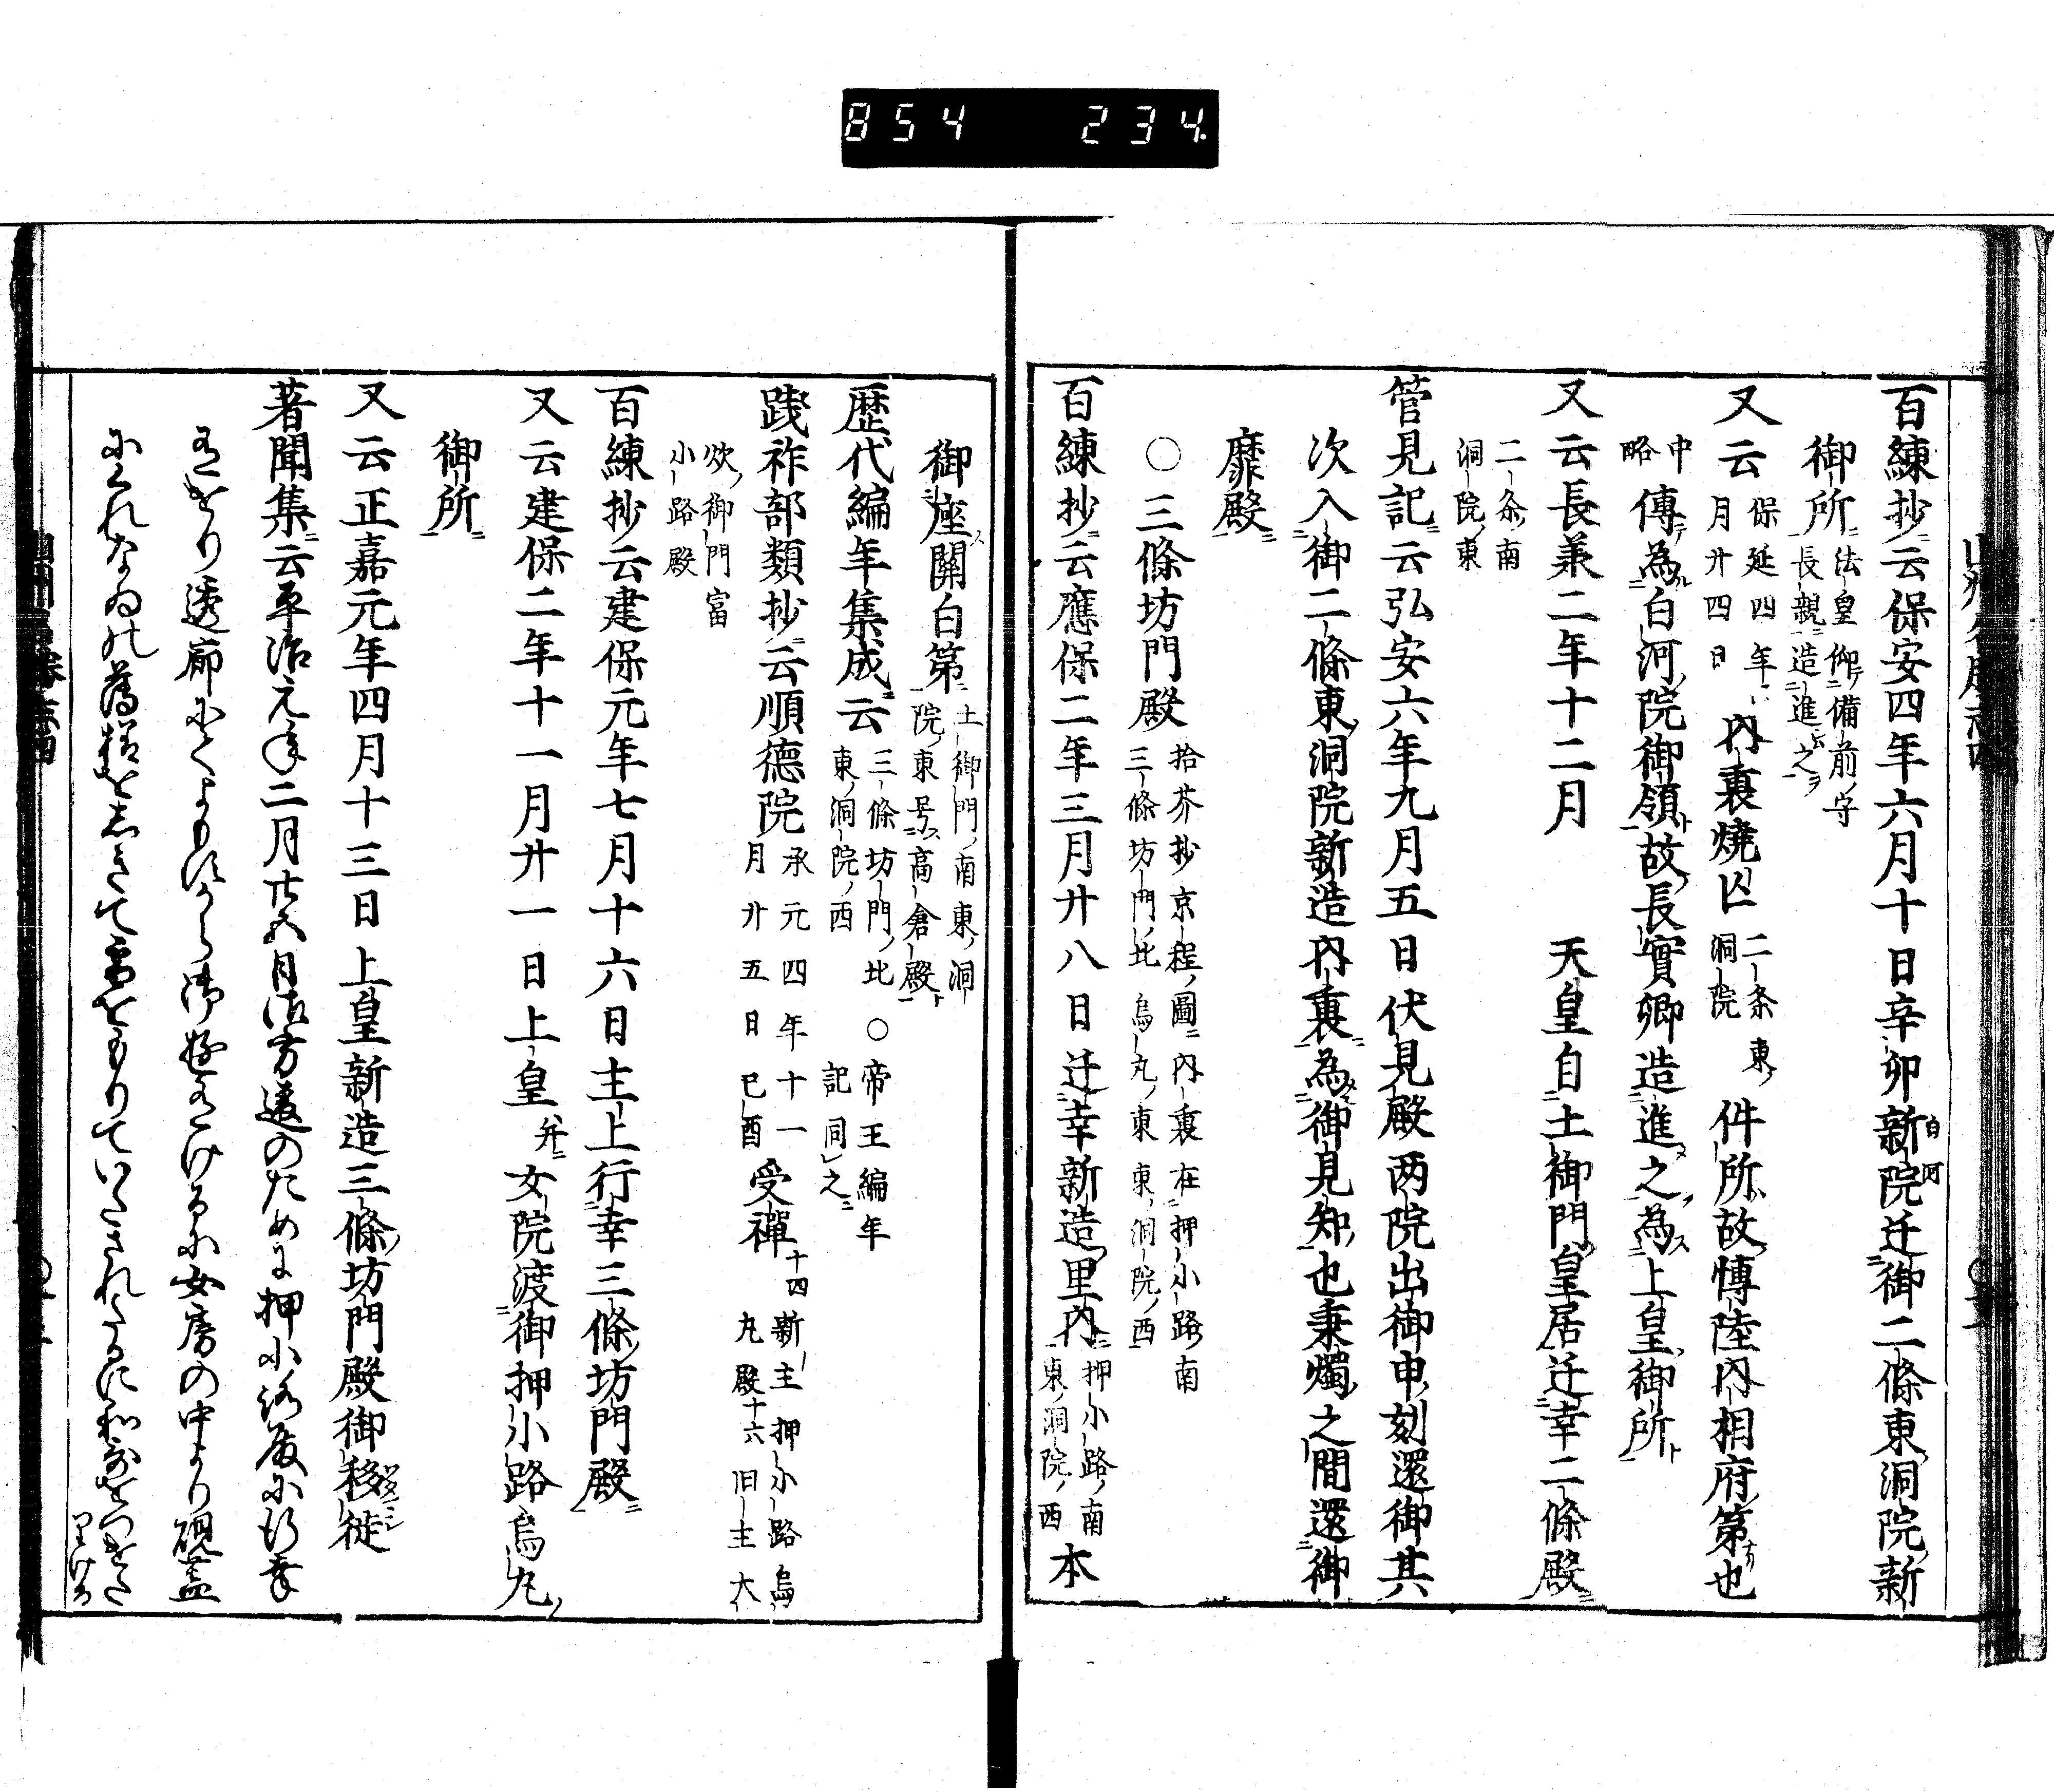 854 234
百練抄云保安四年六月十日辛卯新院白河迁御二條東洞院新
御所法皇仰備前守長親造進之
又云保延四年二月廿四日内裏燒亡二条東洞院件所故博陸内相府第也
中略傳為白河院御領故長實卿造進之為上皇御所
又云長兼二年十二月 天皇自土御門皇居迁幸二條殿
二条南洞院東
管見記云弘安六年九月五日伏見殿两院出御申刻還御其
次入御二條東洞院新造内裏為御見知也秉燭之間還御
靡殿
○三條坊門殿拾芥抄京程圖内裏在押小路南三條坊門北烏丸東東洞院西
百練抄云應保二年三月廿八日迁幸新造里内押小路南東洞院西本
御座關白第土御門南東洞院東号高倉殿
歴代編年集成云三條坊門北東洞院西○帝王編年記同之
践祚部類抄云順德院承元四年十一月廿五日巳酉受禪十四新主押小路烏丸殿十六旧主大
炊御門富小路殿
百練抄云建保元年七月十六日主上行幸三條坊門殿
又云建保二年十一月廿一日上皇并女院渡御押小路烏丸
御所
又云正嘉元年四月十三日上皇新造三條坊門殿御移徙
著聞集云平治元年二月廿五日御方違のために押小路殿に行幸
有けり透廊にてよもすから御遊有けるに女房の中より硯蓋
にくれなゐの薄様をしきて雪をもりていたされたるに和哥をつけた
りける